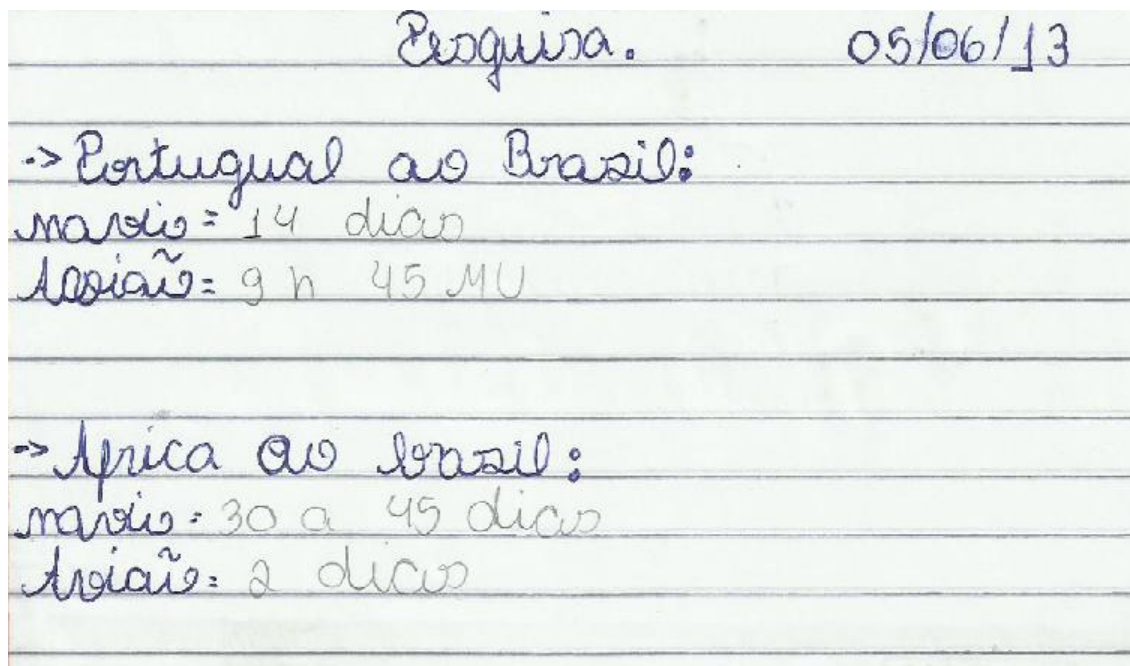 Pesquisa. 05/06/13
-> Portugual ao Brazil:
navio = 14 dias
Avião = 9 h 45 MU
-> Africa ao brazil:
navio = 30 a 45 dias
Avião = 2 dias